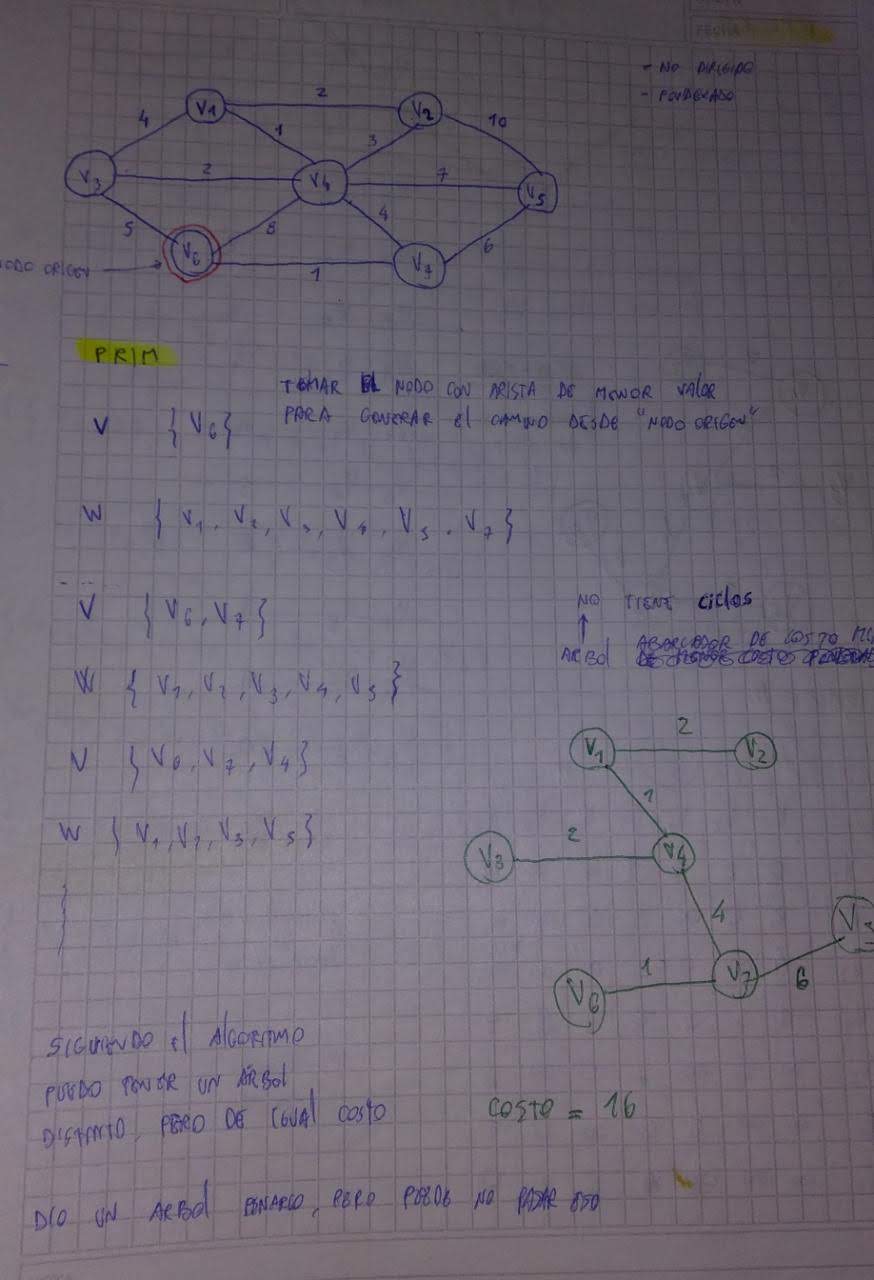 FECHA
- NO DIRIGIDO
- PONDERADO
V1 2 V2
4 1 3 10
V3 2 V4 7 V5
5 8 4 6
V6 1 V7
NODO ORIGEN
PRIM
TOMAR EL NODO CON ARISTA DE MENOR VALOR
PARA GENERAR el CAMINO DESDE "NODO ORIGEN"
V { V6 }
W { V1, V2, V3, V4, V5, V7 }
V { V6, V7 }
NO TIENE ciclos
ARBol ABARCADOR DE COSTO
W { V1, V2, V3, V4, V5 }
V { V6, V7, V4 }
W { V1, V2, V3, V5 }
V1 2 V2
1
V3 2 V4
4
V6 1 V7 6 V5
SIGUIENDO el AlGORITMO
PUEDO TENER UN ARBol
DISTINTO, PERO DE IGUAl COSTO
COSTO = 16
DIO UN ARBol BINARIO, PERO PUEDE NO PASAR ESO